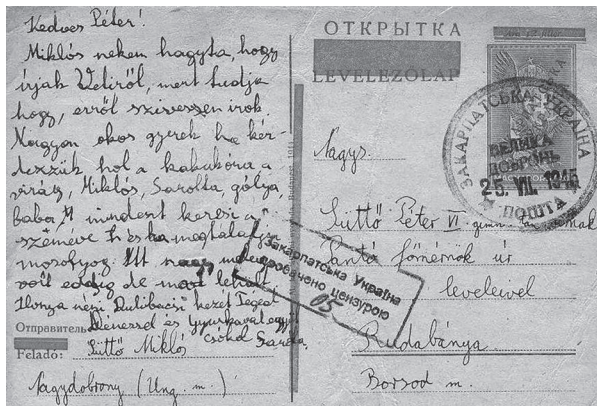 Kedves Péter!
Miklós nekem hagyta, hogy
írjak Vetiről, mert tudja
hogy, erről szivessen irok.
Nagyon okos gyerek ha kér-
dezzük hol a kakukóra a
virág, Miklós, Sarolta, gólya,
baba, mindent keresi a
szemével és ha megtalálja
mosolyog. Itt nagy meleg
volt eddig de má
Ilonya néni, Dulibácsi kezét
Dénessel és Gyurkával együtt
csókol Sarolta
Отправитель
Feladó: Süttő Miklós
Nagydobrony (Ung. m.)
ОТКРЫТКА
LEVELEZŐLAP
ЗАКАРПАТСЬКА УКРАЇНА
ВЕЛИКА
ДОБРОНЬ
25. VII. 1945
ПОШТА
Закарпатська Україна
провачено цензурою
05
Nagys.
Süttő Péter VI gimn.
Jantó főmérnök úr
leveleivel
Rudabánya
Borsod m.